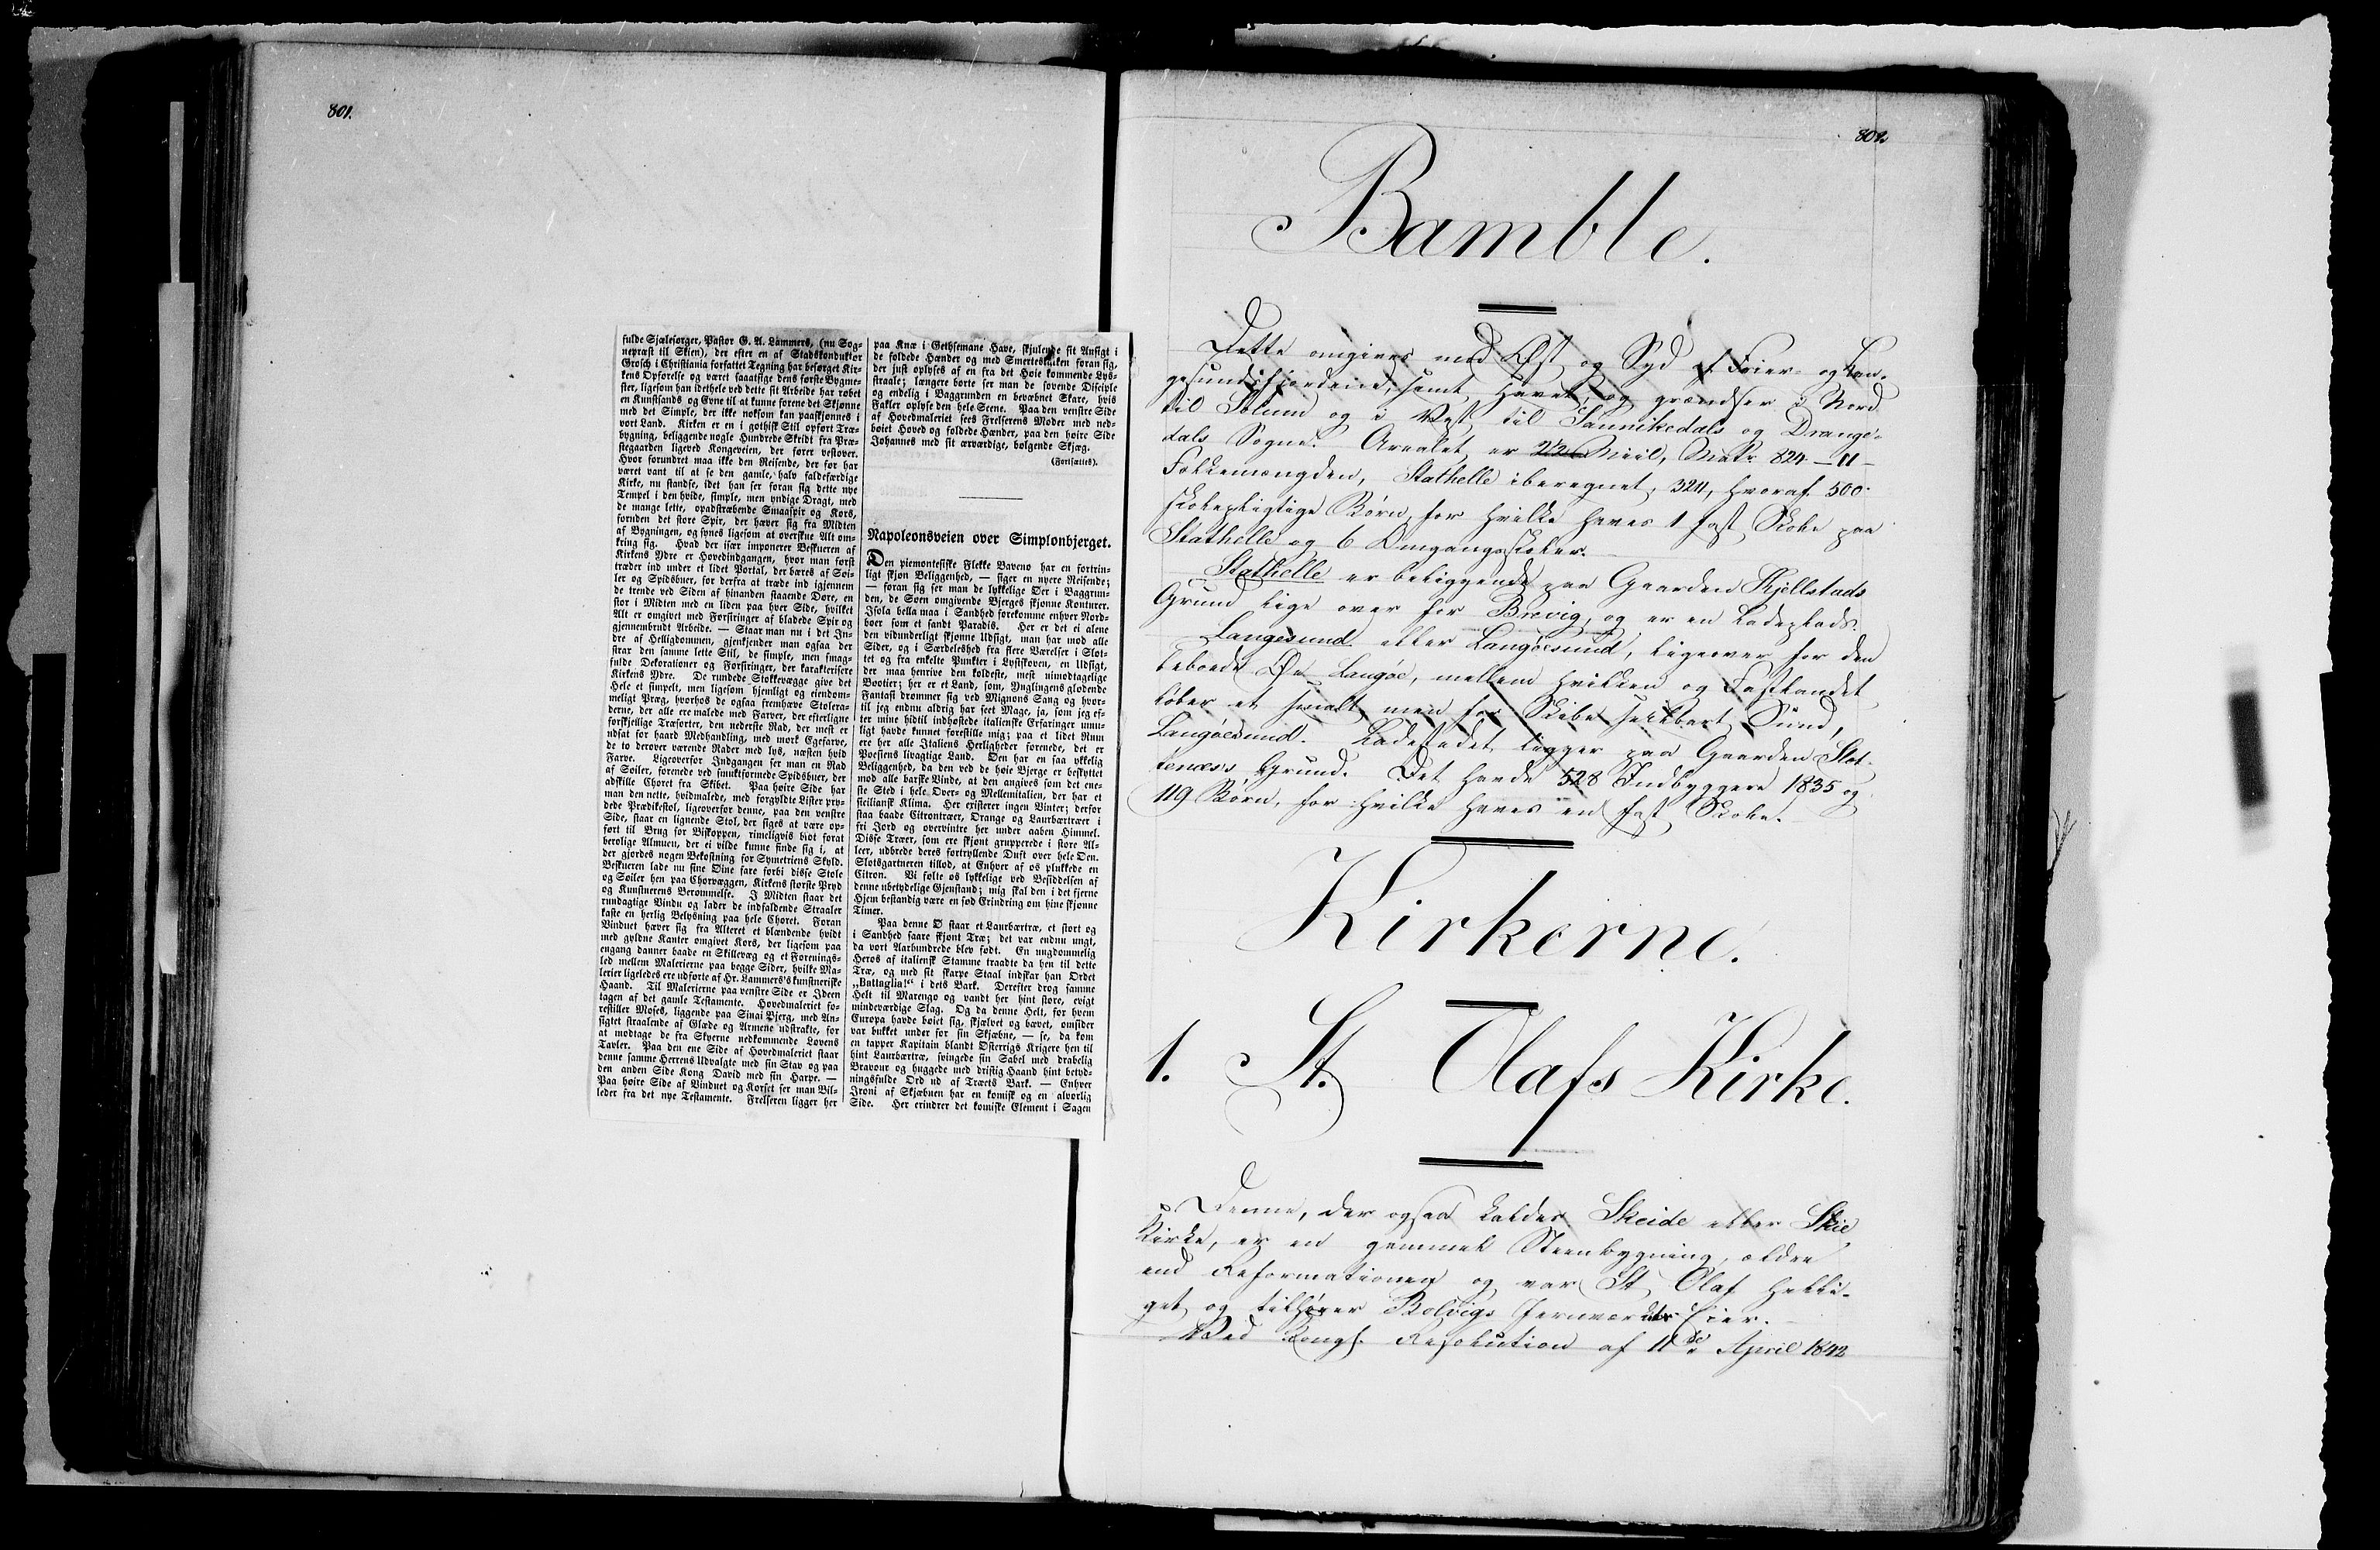 801.
fulde Sjælesorger, Pastor G. A. Lammers, (nu Sog-
nepræst til Skien), der efter en af Stadskonduktør
Grosch i Christiania forfattet Tegning har besørget Kir-
kens Opførelse og været saaatsige dens første Bygme-
ster, ligesom han idethele ved dette sit Arbeide har røbet
en Kunstsands og Evne til at kunne forene det Skjønne
med det Simple, der ikke noksom kan paaskjønnes i
vort Land. Kirken er en i gothisk Stil opført Træ-
bygning, beliggende nogle Hundrede Skridt fra Præ-
stegaarden ligeved Kongeveien, der fører vestover.
Hvor forundret maa ikke den Reisende, der før har
været vant til at se den gamle, halv faldefærdige
Kirke, nu standse, idet han ser foran sig dette nye
Tempel i den hvide, simple, men yndige Dragt, med
de mange lette, opadstræbende Smaaspir og Kors,
foruden det store Spir, der hæver sig fra Midten
af Bygningen, og synes ligesom at overskue Alt om-
kring sig. Hvad der især imponerer Beskueren af
Kirkens Ydre er Hovedindgangen, hvor man først
træder ind under et lidet Portal, der bæres af Søi-
ler og Spidsbuer, for derfra at træde ind igjennem
de trende ved Siden af hinanden staaende Døre, en
stor i Midten med en liden paa hver Side, hvilket
Alt er omgivet med Forsiringer af bladede Spir og
gjennembrudt Arbeide. — Staar man nu i det In-
dre af Helligdommen, gjenkjender man ogsaa der
strax den samme lette Stil, de simple, men smag-
fulde Dekorationer og Forsiringer, der karakterisere
Kirkens Ydre. De rundede Stokkevægge give det
Hele et simpelt, men ligesom hjemligt og eiendom-
meligt Præg, hvorhos de ogsaa fremhæve Stolera-
derne, der alle ere malede med Farver, der efterligne
forskjellige Træsorter, den nederste Rad, der mest er
udsat for haard Medhandling, med mørk Egefarve,
de to derover værende Rader med lys, næsten hvid
Farve. Ligeoverfor Indgangen ser man en Rad
af Søiler, forenede ved smuktformede Spidsbuer, der
adskille Choret fra Skibet. Paa høire Side har
man den nette, hvidmalede, med forgyldte Lister pry-
dede Prædikestol, ligeoverfor denne, paa den venstre
Side, staar en lignende Stol, der siges at være op-
ført til Brug for Biskoppen, rimeligvis blot forat
berolige Almuen, der ei vilde kunne finde sig i, at
der gjordes nogen Bekostning for Symetriens Skyld.
Beskueren lade nu sine Øine fare forbi disse Stole
og Søiler hen paa Chorvæggen, Kirkens største Pryd
og Kunstnerens Berømmelse. I Midten staar det
rundagtige Vindu og lader de indfaldende Straaler
kaste en herlig Belysning paa hele Choret. Foran
Vinduet hæver sig fra Alteret et blændende hvidt
med gyldne Kanter omgivet Kors, der ligesom paa
engang danner baade en Skillevæg og et Forenings-
led mellem Malerierne paa begge Sider, hvilke Ma-
lerier ligeledes ere udførte af Hr. Lammers's kunstneriske
Haand. Til Malerierne paa venstre Side er Ideen
tagen af det gamle Testamente. Hovedmaleriet fo-
restiller Moses, liggende paa Sinai Bjerg, med An-
sigtet straalende af Glæde og Armene udstrakte, for
at modtage de fra Skyerne nedkommende Lovens
Tavler. Paa den ene Side af Hovedmaleriet staar
denne samme Herrens Udvalgte med sin Stav og paa
den anden Side Kong David med sin Harpe. —
Paa høire Side af Vinduet og Korset ser man Bil-
leder fra det nye Testamente. Frelseren ligger her
paa Knæ i Gethsemane Have, skjulende sit Ansigt i
de foldede Hænder og med Smerteskalken foran sig,
der just oplyses af en fra det Høie kommende Lys-
straale; længere borte ser man de sovende Disciple
og endelig i Baggrunden en bevæbnet Skare, hvis
Fakler oplyse den hele Scene. Paa den venstre Side
af Hovedmaleriet sees Frelserens Moder med ned-
bøiet Hoved og foldede Hænder, paa den høire Side
Johannes med sit ærværdige, bølgende Skjæg.
(Fortsættes).
Napoleonsveien over Simplonbjerget.
Den piemontesiske Flekke Baveno har en fortrin-
ligt skjøn Beliggenhed, — siger en nyere Reisende;
— foran sig ser man de lykkelige Øer i Baggrun-
den, de Søen omgivende Bjerges skjønne Konturer.
Isola bella maa i Sandhed forekomme enhver Nord-
boer som et sandt Paradis. Her er det ei alene
den vidunderligt skjønne Udsigt, man har mod alle
Sider, og i Særdeleshed fra flere Værelser i Slot-
tet og fra enkelte Punkter i Lystskoven, en Udsigt,
der maa henrive den koldeste, mest uimodtagelige
Bootier; her er et Land, som, Ynglingens glødende
Fantasi drømmer sig ved Mignons Sang og hvor-
til jeg endnu aldrig har seet Mage, ja, som jeg ef-
ter mine hidtil indhøstede italienske Erfaringer umu-
ligt havde kunnet forestille mig; paa et lidet Rum
ere her alle Italiens Herligheder forenede, det er
Poesiens livagtige Land. Den har en saa lykkelig
Beliggenhed, da den ved de høie Bjerge er beskyttet
mod alle barske Vinde, at den angives som det ene-
ste Sted i hele Over- og Mellemitalien, der har et
siciliansk Klima. Her existerer ingen Vinter; derfor
staa baade Citrontræer, Orange og Laurbærtræer i
fri Jord og overvintre her under aaben Himmel.
Disse Træer, som ere skjønt grupperede i store Al-
leer, udbrede deres fortryllende Duft over hele Øen.
Slotsgartneren tillod, at Enhver af os plukkede en
Citron. Vi følte os lykkelige ved Besiddelsen af
denne ubetydelige Gjenstand; mig skal den i det fjerne
Hjem bestandig være en sød Erindring om hine skjønne
Timer.
Paa denne Ø staar et Laurbærtræ, et stort og
i Sandhed saare skjønt Træ; det var endnu ungt,
da vort Aarhundrede blev født. En ungdommelig
Heros af italiensk Stamme traadte da hen til dette
Træ, og med sit skarpe Staal indskar han Ordet
„Battaglia!“ i dets Bark. Derefter drog samme
Helt til Marengo og vandt her hint store, evigt
mindeværdige Slag. Og da denne Helt, for hvem
Europa havde bøiet sig, skjælvet og bævet, omsider
var bukket under for sin Skjæbne, — se, da kom
en tapper Kapitain blandt Østerrigs Krigere hen til
hint Laurbærtræ, svingede sin Sabel med drabelig
Bravour og huggede med dristig Haand hint betyd-
ningsfulde Ord ud af Træets Bark. — Enhver
Ironi af Skjæbnen har en komisk og en alvorlig
Side. Her erindrer det komiske Element i Sagen
802
Bamble.
Dette omgives mod Øst og Syd af Feier- og Lan-
gesundsfjordene, samt Havet, og grændser i Nord
til Solum og i Vest til Sannikedals og Drange-
dals Sogne. Arealet er 2½ Miil, Matr. 824 — 11 —
Folkemængden, Stathelle iberegnet, 3211, hvoraf 500
skolepligtige Børn, for hvilke haves 1 fast Skole paa
Stathelle og 6 Omgangsskoler.
Stathelle er beliggende paa Gaarden Kjellstads
Grund lige over for Brevig, og er en Ladeplads.
Langesund eller Langöesund, ligeover for den
beboede Øe Langöe, mellem hvilken og Fastlandet
løber et smalt men for Skibe seilbart Sund,
Langöesund. Ladestedet ligger paa Gaarden Slot-
tenæss Grund. Det havde 528 Indbyggere 1835 og
119 Børn, for hvilke haves en fast Skole.
Kirkerne.
1. St. Olafs Kirke.
Denne, der ogsaa kaldes Skeide eller Skie
Kirke, er en gammel Steenbygning, ældre
end Reformationen og var St Olaf helli-
get og tilhører Bolvigs Jernværks Eier.
Ved Kongl. Resolution af 11te April 1842